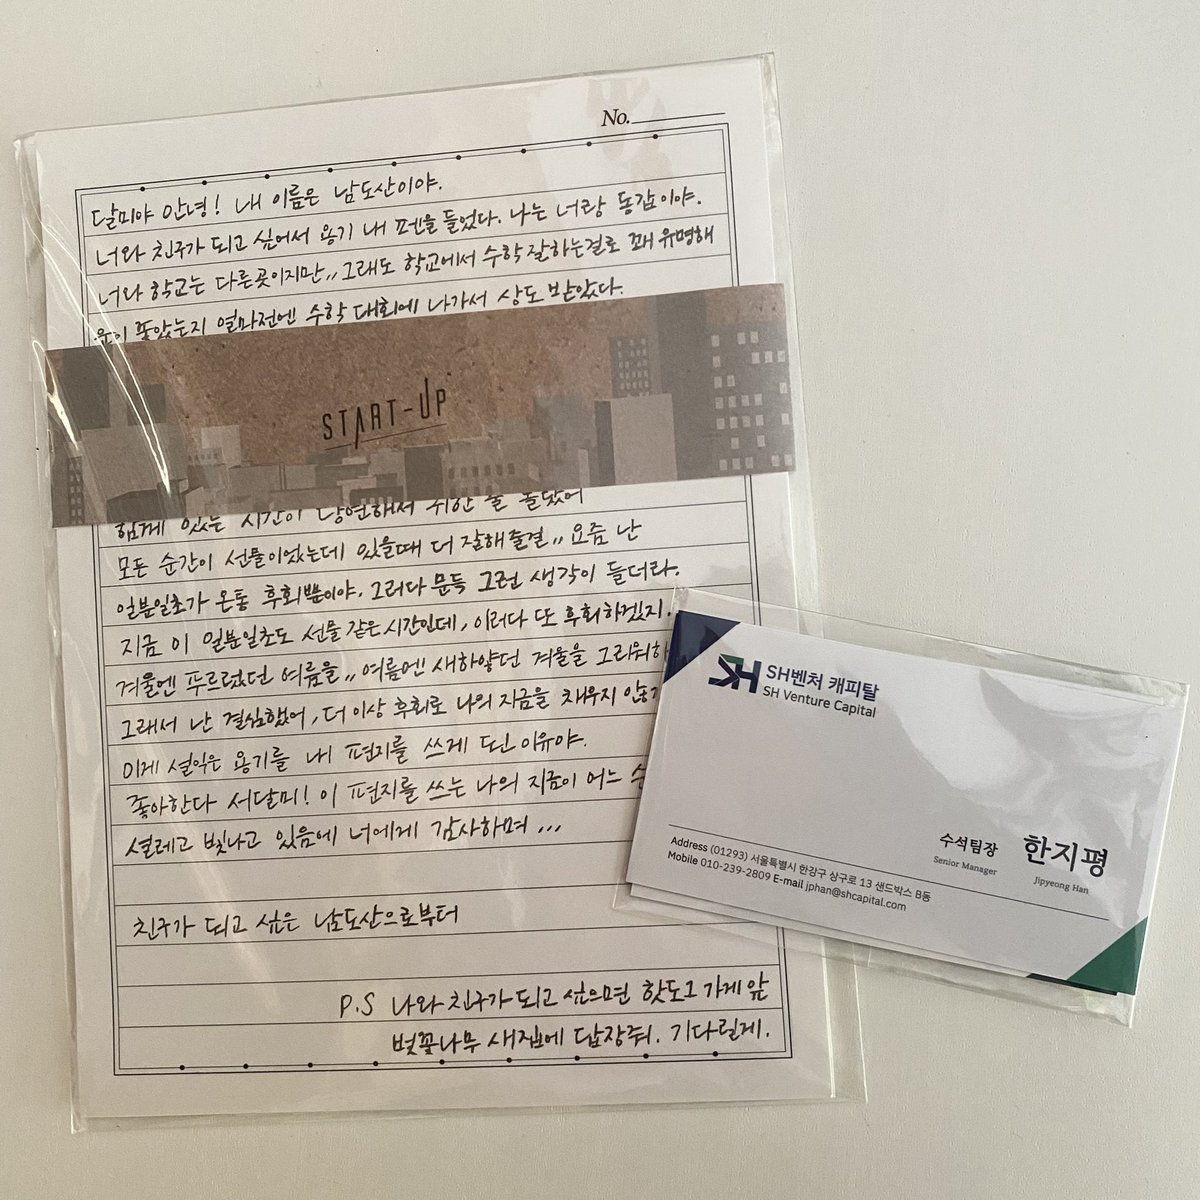 No.
달미야 안녕! 내 이름은 남도산이야.
너와 친구가 되고 싶어서 용기 내 펜을 들었다. 나는 너랑 동갑이야.
너와 학교는 다른곳이지만,, 그래도 학교에서 수학 잘하는걸로 꽤 유명해
운이 좋았는지 얼마전엔 수학 대회에 나가서 상도 받았다.
START-UP
함께 있는 시간이 당연해서 귀한 줄 몰랐어
모든 순간이 선물이었는데 있을때 더 잘해줄걸,, 요즘 난
일분일초가 온통 후회뿐이야. 그러다 문득 그런 생각이 들더라.
지금 이 일분일초도 선물 같은 시간인데, 이러다 또 후회하겠지.
겨울엔 푸르렀던 여름을,, 여름엔 새하얗던 겨울을 그리워하
그래서 난 결심했어, 더 이상 후회로 나의 지금을 채우지 않기
이게 설익은 용기를 내 편지를 쓰게 된 이유야.
좋아한다 서달미! 이 편지를 쓰는 나의 지금이 어느
설레고 빛나고 있음에 너에게 감사하며...
친구가 되고 싶은 남도산으로부터
P.S 나와 친구가 되고 싶으면 핫도그 가게 앞
벚꽃나무 새집에 답장줘. 기다릴게.
SH SH벤처 캐피탈
SH Venture Capital
수석팀장 한지평
Senior Manager Jipyeong Han
Address (01293) 서울특별시 한강구 상구로 13 샌드박스 B동
Mobile 010-239-2809 E-mail jphan@shcapital.com